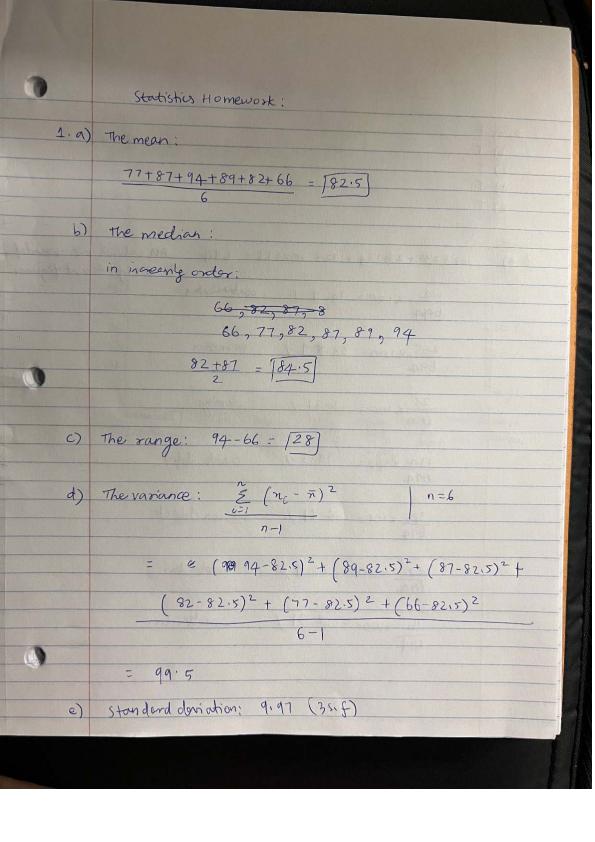 Statistics Homework:
1. a) The mean:
77+87+94+89+82+66 / 6 = 82.5
b) The median:
in order:
66, 82, 87, 8
66, 77, 82, 87, 89, 94
82+87 / 2 = 84.5
c) The range: 94-66 = 28
d) The variance: n Σ i=1 (xi - x̄)² / n-1 | n=6
= (94-82.5)² + (89-82.5)² + (87-82.5)² +
(82-82.5)² + (77-82.5)² + (66-82.5)²
6-1
= 99.5
e) standard deviation: 9.97 (3s.f)